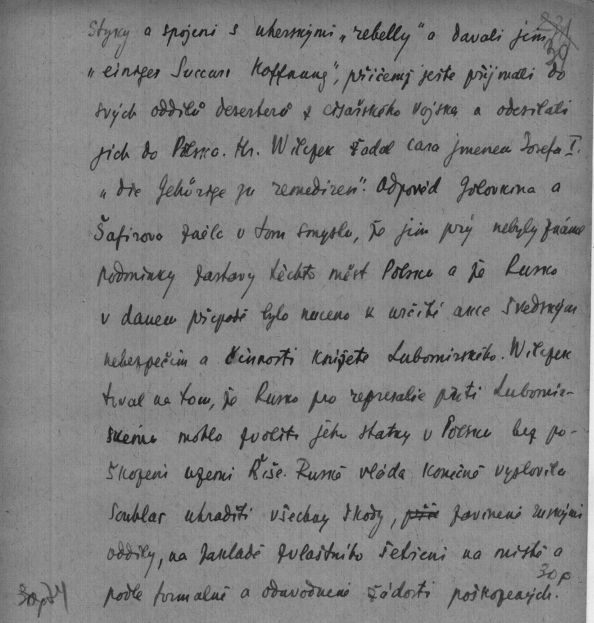 Styky a spojení s uherskými „rebelly“ a davali jim
„einiges Succurs Hoffnung“, přičemž ještě přijmali do
svých oddílů desertero z císařského vojska a odesílali
jich do Polska. Hr. Wilczek žádal cara jmenem Josefa I.
„die Gehörige zu remediren“. Odpověd Golovkina a
Šafirova zněla v tom smyslu, že jim prý nebyly známé
podmínky zástavy těchto měst Polsku a že Rusko
v daném případě bylo nuceno k určité akce švedským
nebezpečím a činností knížete Lubomirského. Wilczek
trval na tom, že Rusko pro represalie proti Lubomir-
skému mohlo zvoliti jeho statky v Polsku bez po-
škození uzemí Říše. Ruská vláda konečně vyslovila
souhlas uhraditi všechny škody, zaviněné ruskými
oddíly, na základě zvlaštního šetření na místě a
podle formalně a oduvodněné žádosti poškozených.